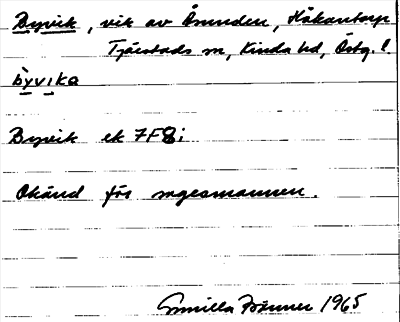 Byvik, vik av Åsunden, Håkantorp
Tjärstads sn, Kinda hd, Östg. l.
byvika
Byvik ek 7F8i
Okänd för sagesmannen.
Gunilla Brönner 1965